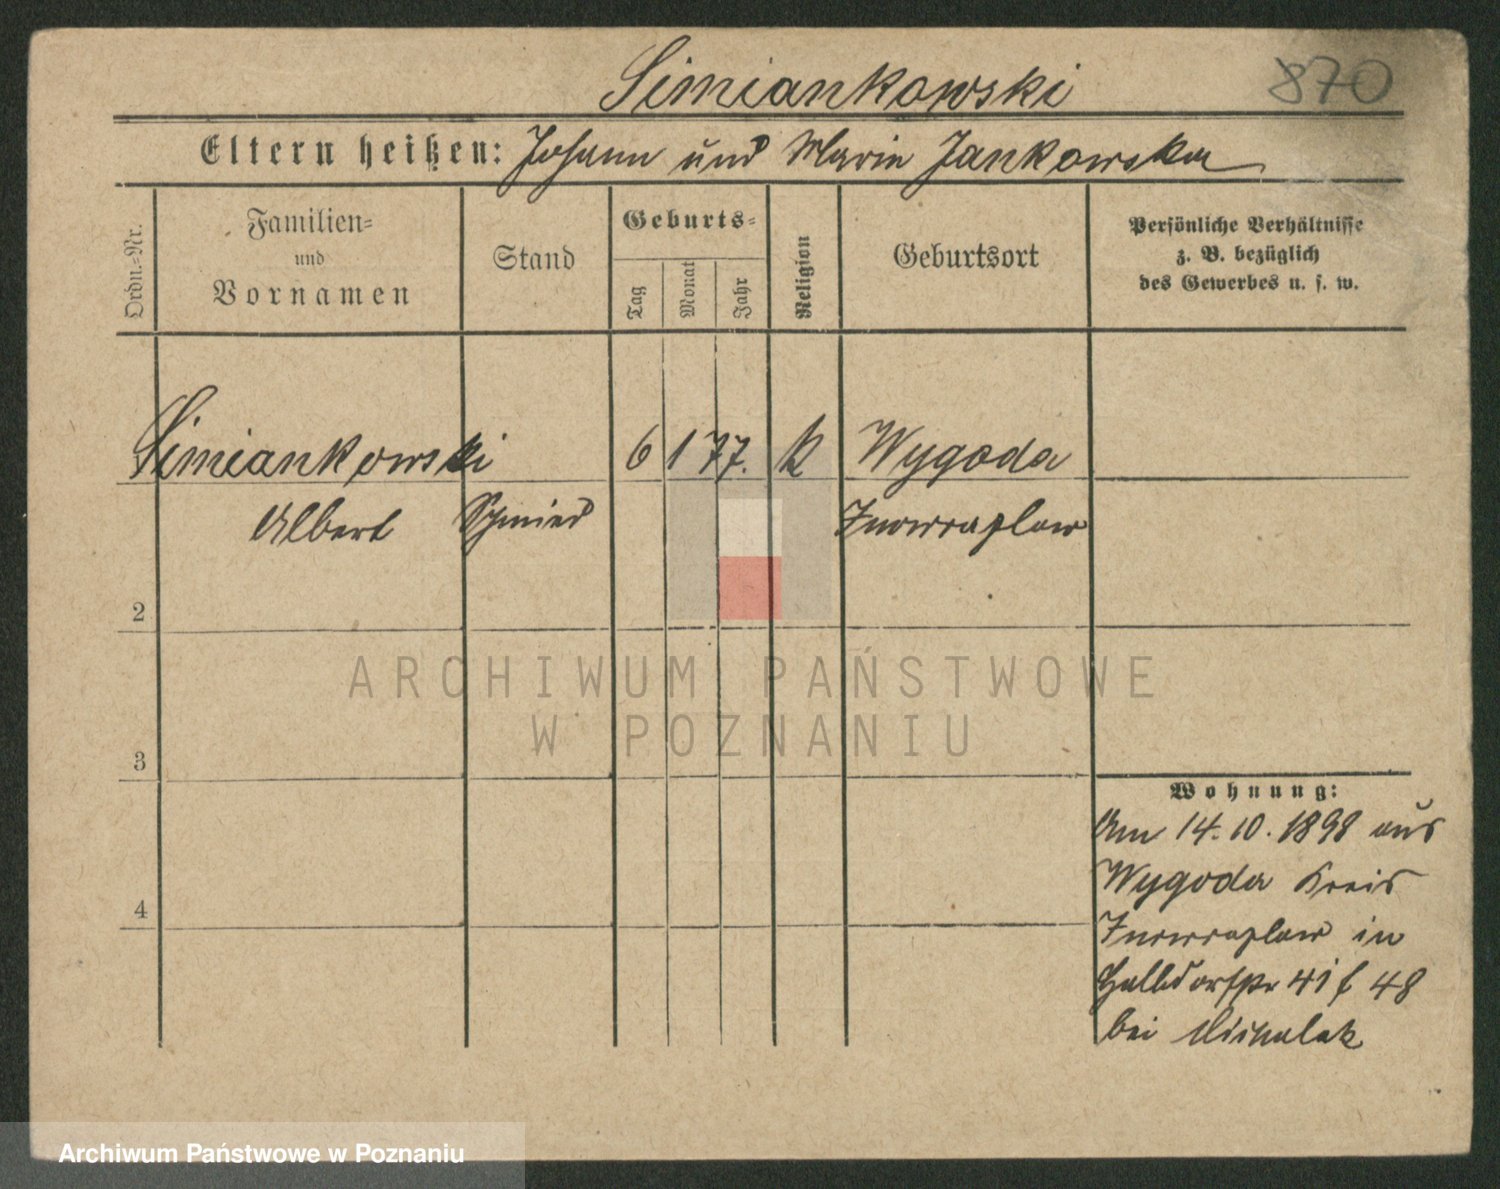 Simiankowski 870
Eltern heißen: Johann und Marie Jankowska
Ordn.-Nr.
Familien-
und
Vornamen
Stand
Geburts-
Tag
Monat
Jahr
Religion
Geburtsort
Persönliche Verhältnisse
z. B. bezüglich
des Gewerbes u. s. w.
Simiankowski 6 1 77. k Wygoda
Albert Schmied Inowrazlaw
2
3
4
Wohnung:
Am 14. 10. 1898 aus
Wygoda Kreis
Inowrazlaw in
Halbdorfstr 41 48
bei
ARCHIWUM PAŃSTWOWE
W POZNANIU
Archiwum Państwowe w Poznaniu